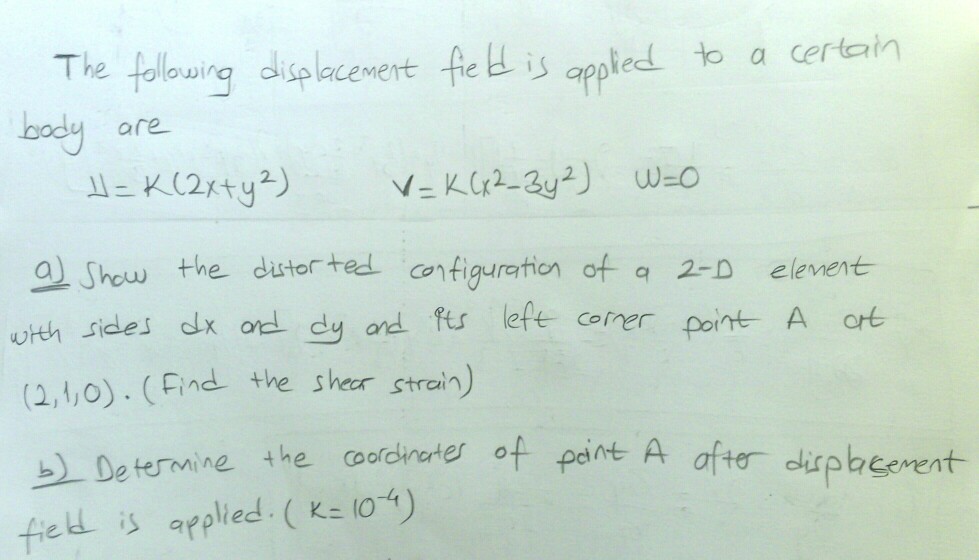 The following displacement field is applied to a certain
body are
U = K(2x+y²) V = K(x²-3y²) W=0
a) Show the distorted configuration of a 2-D element
with sides dx and dy and its left corner point A at
(2,1,0). (Find the shear strain)
b) Determine the coordinates of point A after displacement
field is applied. (K=10⁻⁴)